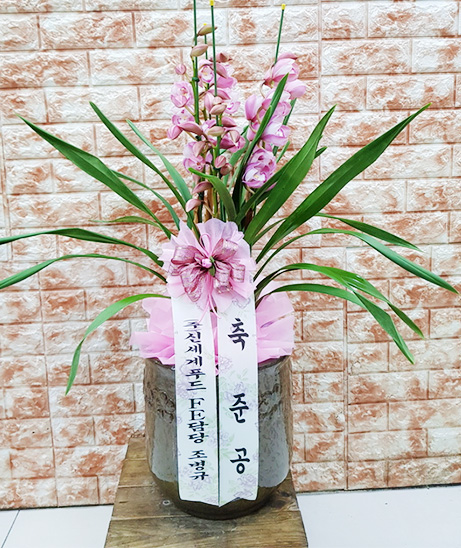 축 준 공
㈜신세계푸드 FE담당 조명규